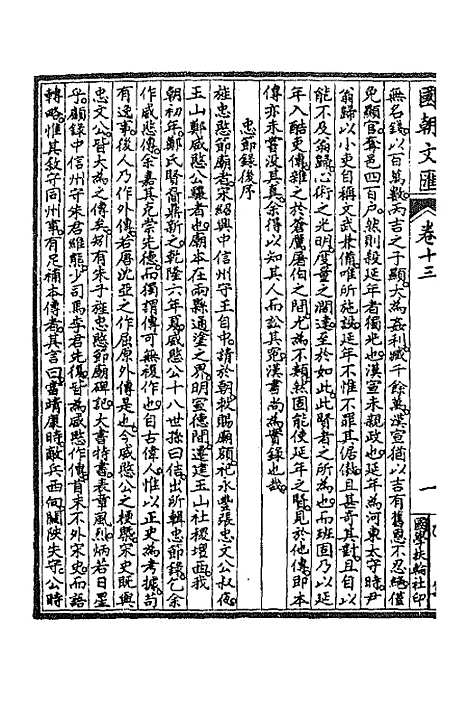 國朝文匯　卷十三　一　國學扶輪社印
無名錢以百萬數丙吉之子顯大為姦利臧千餘萬漢宣猶以吉有舊恩不忍絕僅
免顯官奪邑四百戶然則段延年者獨北也漢宣未親政也延年為河東太守時尹
翁歸以小吏自稱文武兼備唯所施設延年不惟不罪其倨傲且甚奇其對且自以
能不及翁歸心術之光明度量之闊達至於如此此賢者之所為也而班固乃以延
年入酷吏傳雜之於蒼鷹屠伯之間尤為不類然固能使延年之賢見於他傳即本
傳亦未嘗没其真余得以知其人而訟其冤漢書尚為實錄也哉
忠節錄後序
旌忠愍節廟者宋紹興中信州守王自中請於朝敕賜廟額祀永豐張忠文公叔夜
玉山鄭威愍公驤者也廟本在兩縣通望之界明宣德間遷建玉山社稷壇西我
朝初年鄭氏賢裔鼎新之乾隆六年夏威愍公十八世孫曰佶出所輯忠節錄乞余
作威愍傳余嘉其克崇先德而獨謂傳可無複作也自古偉人惟以正史為考據苟
有逸事後人乃作外傳若唐沈亞之作屈原外傳是也今威愍公之梗槩宋史既與
忠文公皆大為之傳矣矧有朱子旌忠愍節廟碑記大書特書表章風烈炳若日星
乎顧錄中信州守朱君維熊少司馬李君先復皆為威愍作傳首末不外宋史而語
轉略惟其敘守同州事有足補本傳者其言曰當靖康時敵兵西向關陝失守公時